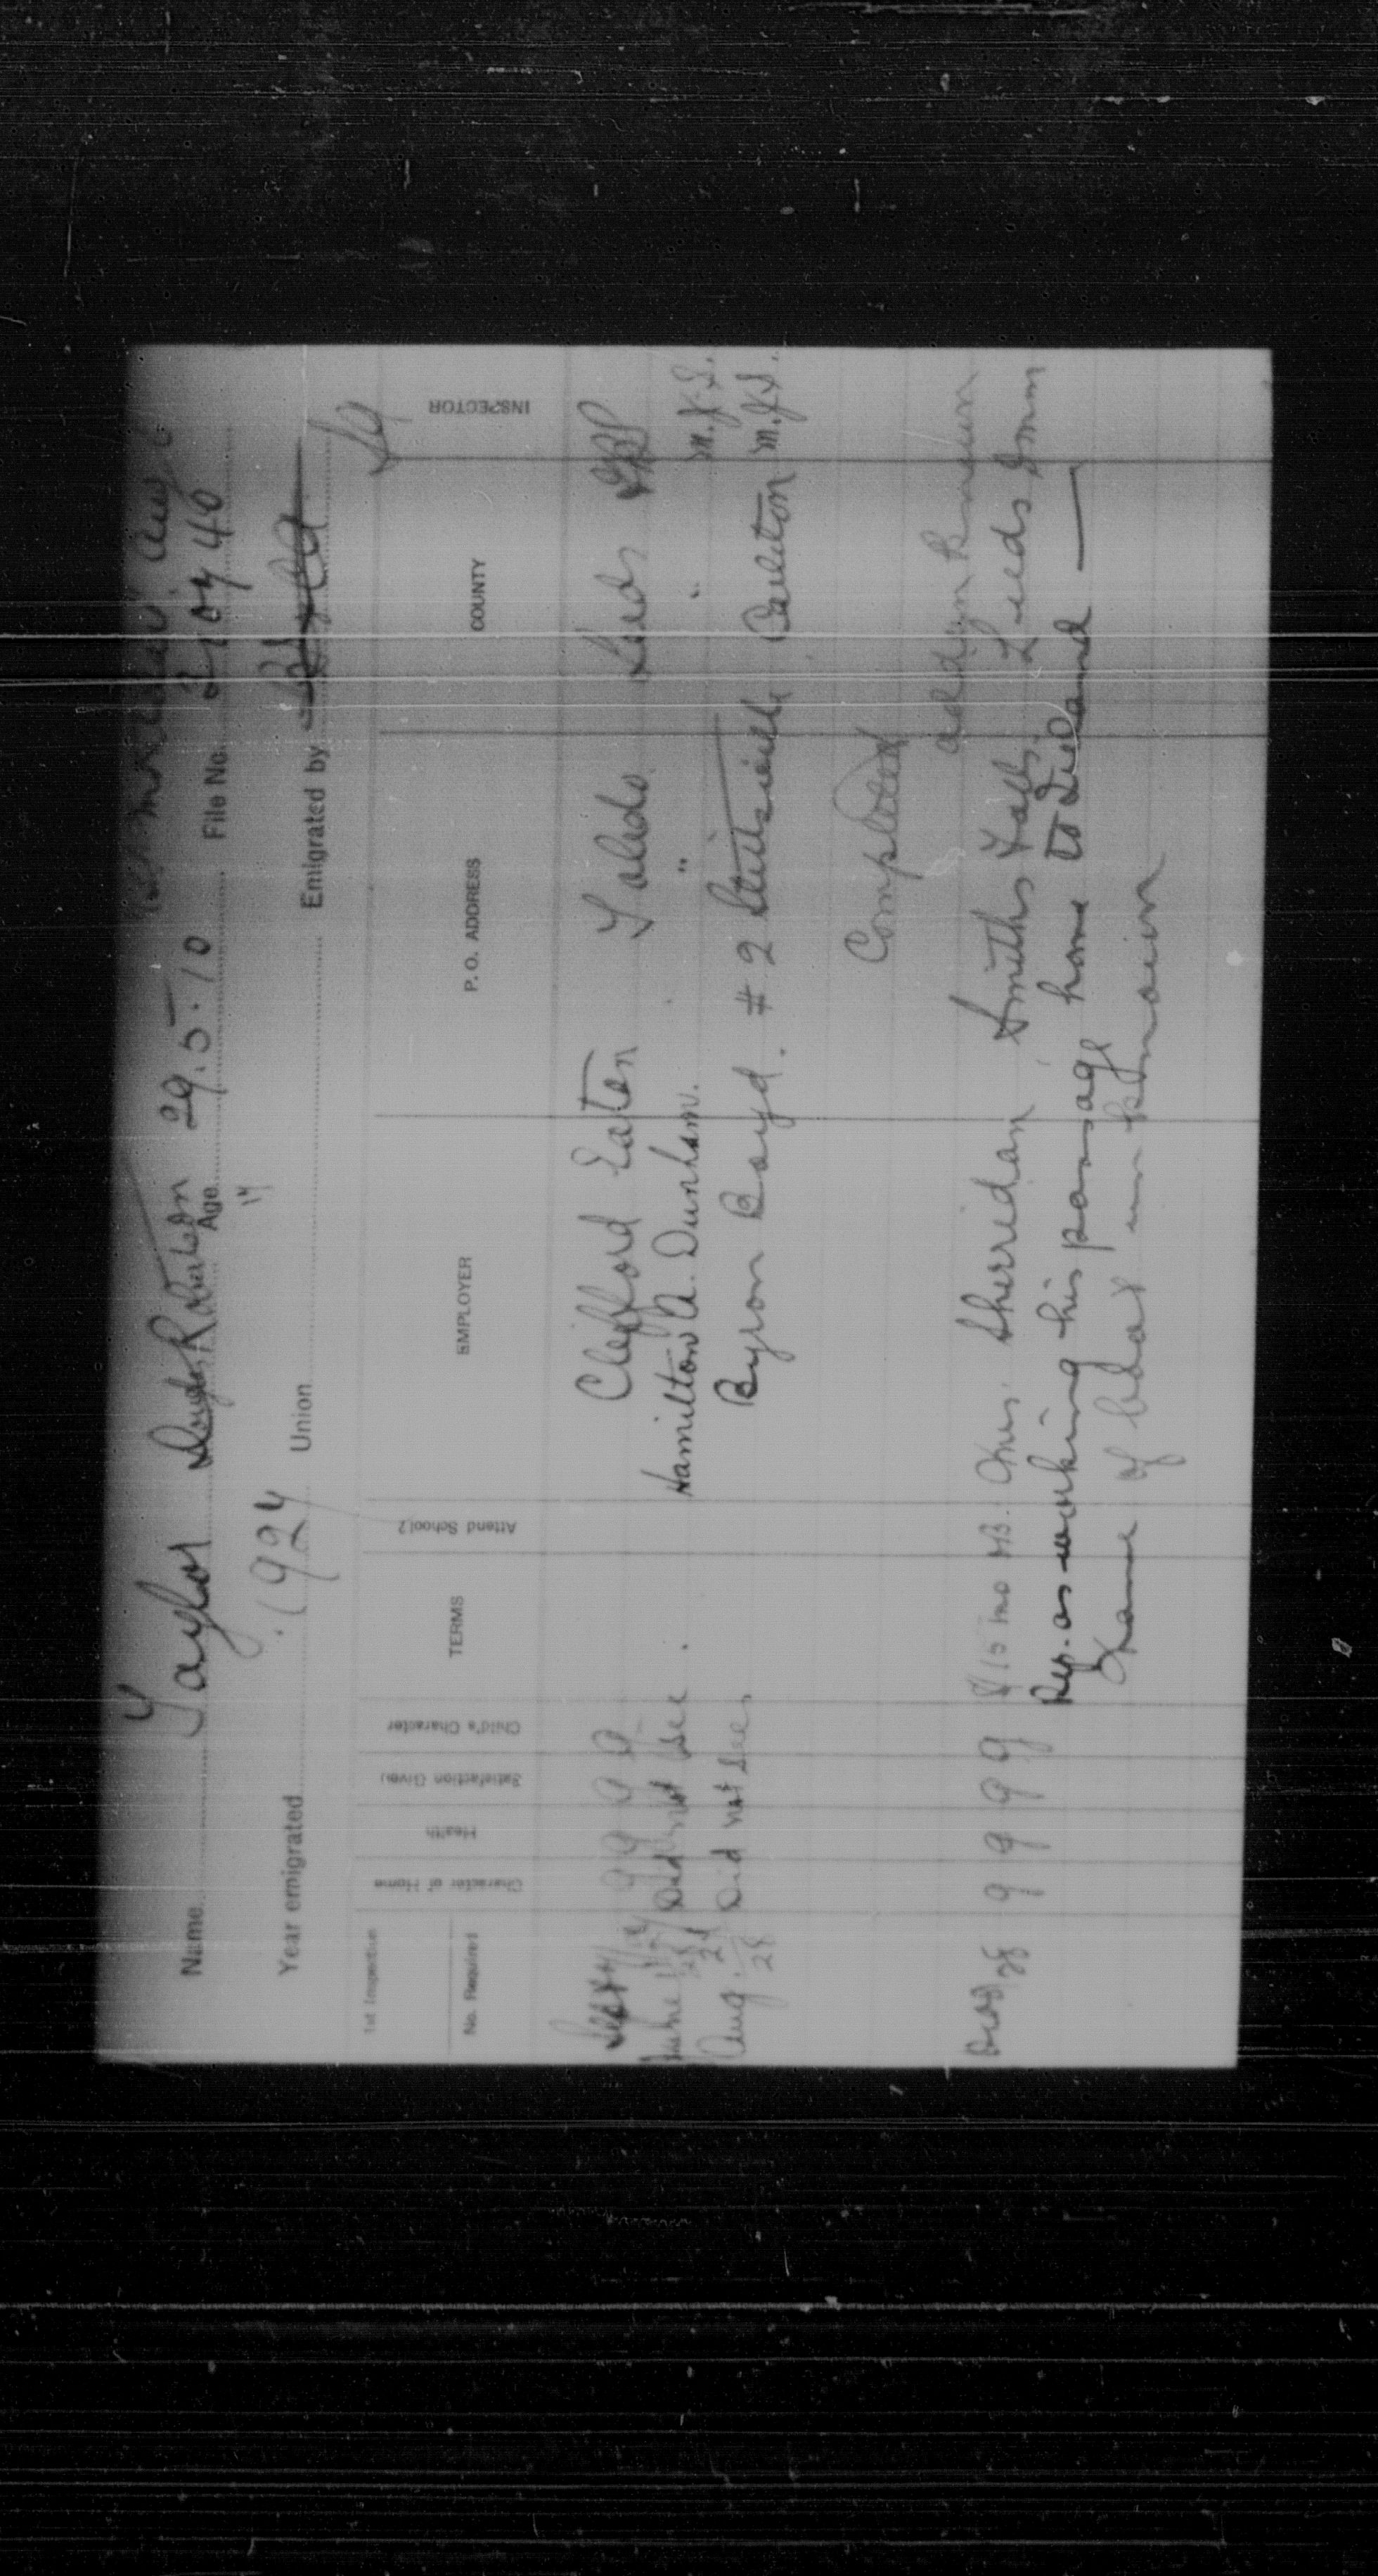 Name Taylor Robertson Age 29.5.10 File No. 40
14
Year emigrated 1924 Union Emigrated by
1st Inspection
No. Required Character of Home Health Satisfaction Given Child's Character TERMS Attend School? EMPLOYER P. O. ADDRESS COUNTY INSPECTOR
g g g g Clifford Eaton Toledo Leeds
June Did not see. Hamilton A. Dunham. " " M.J.S.
Aug. 21/28 Did not see, Byron Boyd. # 2 Stittsville Carleton M.J.S.
Completed
address unknown
28 g g g g $15 mo Sherridan Smiths Falls. Leeds
Rep. as working his passage home to Ireland —
Name of boat unknown